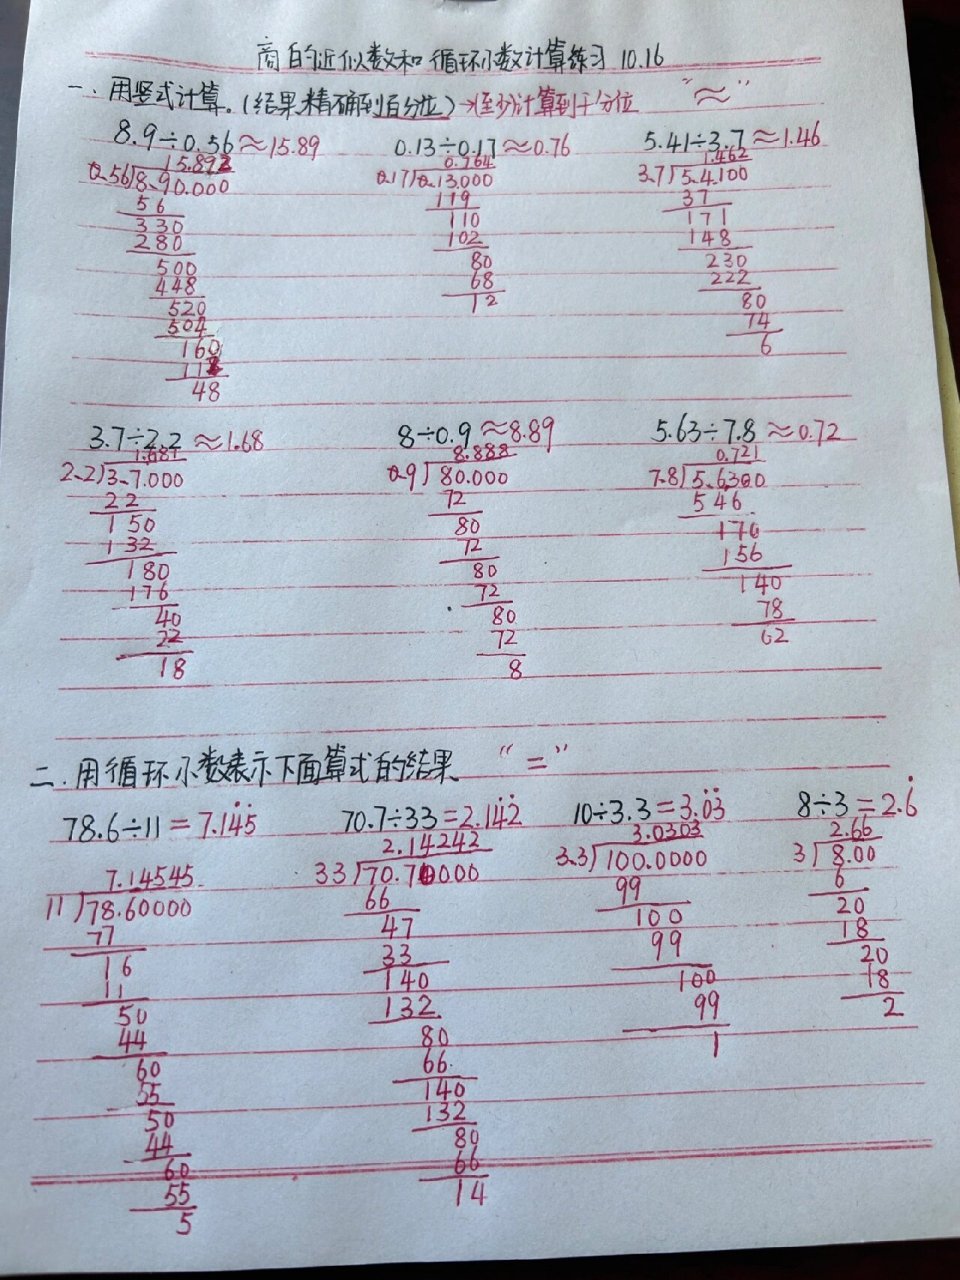 商的近似数和循环小数计算练习 10.16
一、用竖式计算。(结果精确到百分位)→至少计算到千分位 “≈”
8.9÷0.56≈15.89 0.13÷0.17≈0.76 5.41÷3.7≈1.46
15.892 0.764 1.462
0.56)8.90.000 0.17)0.13.000 3.7)5.4.100
56 119 37
330 110 171
280 102 148
500 80 230
448 68 222
520 12 80
504 74
160 6
112
48
3.7÷2.2≈1.68 8÷0.9≈8.89 5.63÷7.8≈0.72
1.681 8.888 0.721
2.2)3.7.000 0.9)80.000 7.8)5.6300
22 72 546
150 80 170
132 72 156
180 80 140
176 72 78
40 80 62
22 72
18 8
二.用循环小数表示下面算式的结果 “=”
78.6÷11=7.14̇5̇ 70.7÷33=2.14̇2̇ 10÷3.3=3.0̇3̇ 8÷3=2.6̇
7.14545 2.14242 3.0303 2.66
11)78.60000 33)70.70000 3.3)100.0000 3)8.00
77 66 99 6
16 47 100 20
11 33 99 18
50 140 100 20
44 132 99 18
60 80 1 2
55 66
50 140
44 132
60 80
55 66
5 14